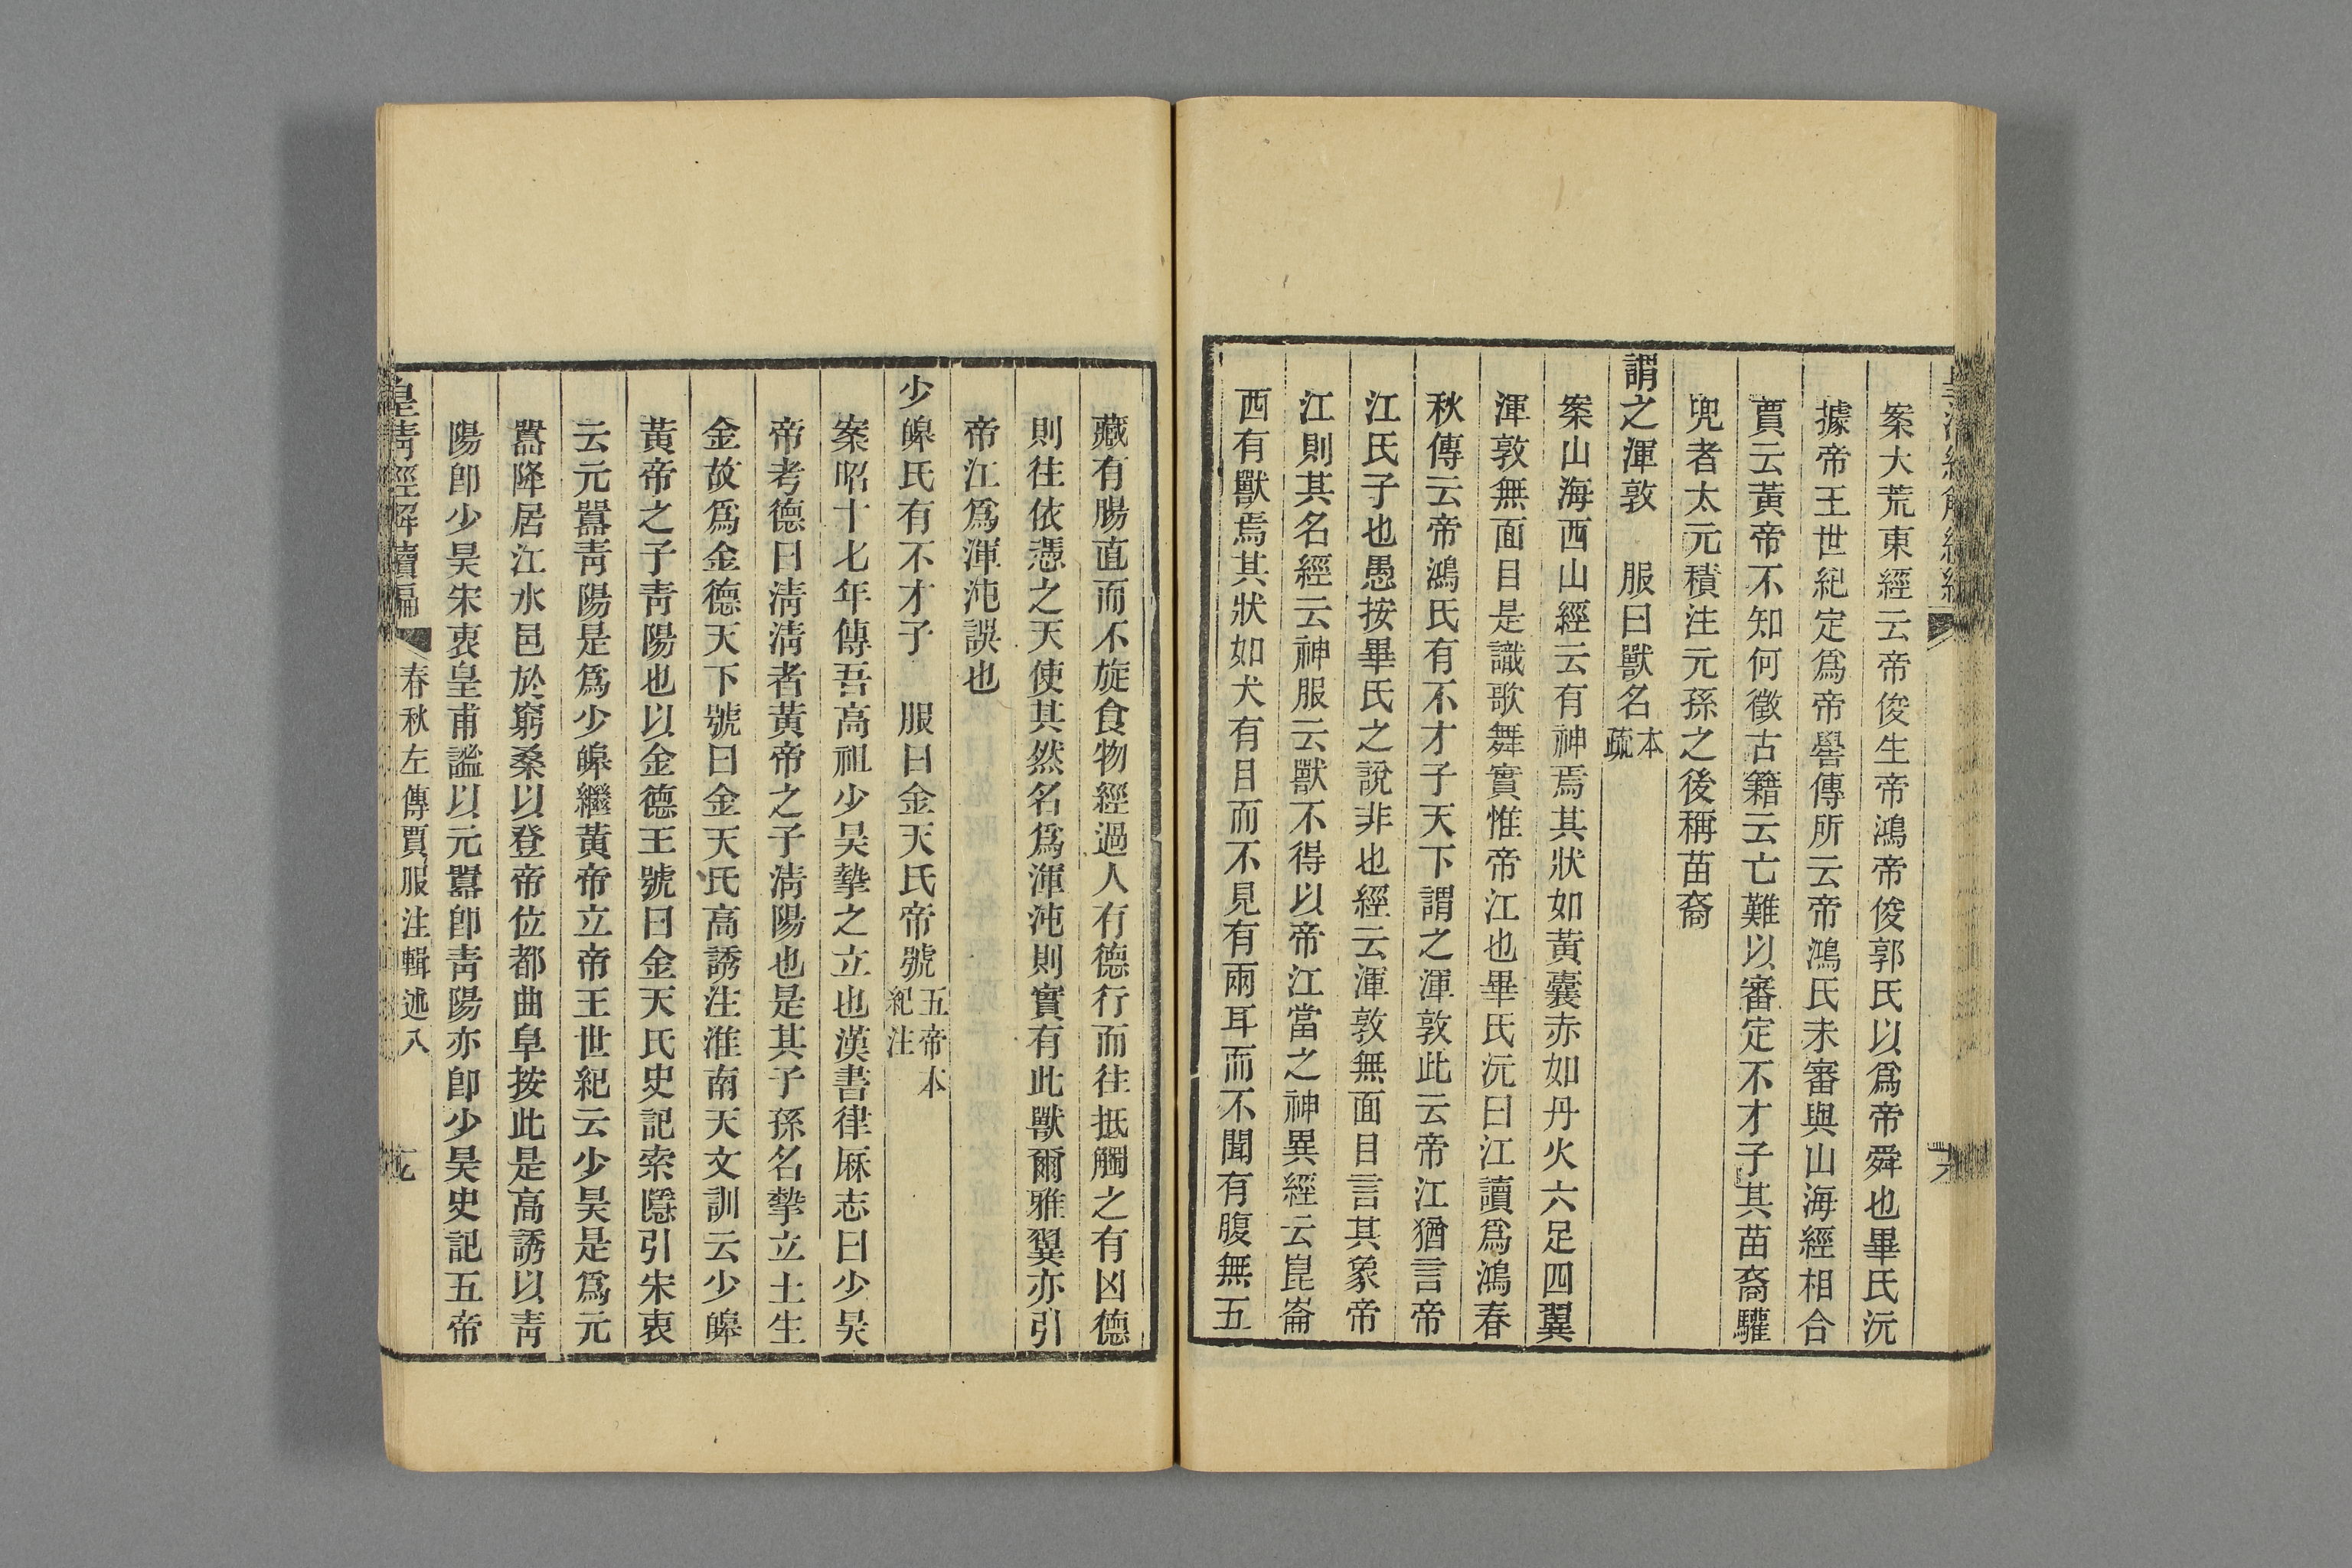 案大荒東經云帝俊生帝鴻帝俊郭氏以爲帝舜也畢氏沅
據帝王世紀定爲帝嚳傳所云帝鴻氏未審與山海經相合
賈云黃帝不知何徵古籍云亡難以審定不才子其苗裔驩
兜者太元積注元孫之後稱苗裔
謂之渾敦　服曰獸名本疏
案山海西山經云有神焉其狀如黃囊赤如丹火六足四翼
渾敦無面目是識歌舞實惟帝江也畢氏沅曰江讀爲鴻春
秋傳云帝鴻氏有不才子天下謂之渾敦此云帝江猶言帝
江氏子也愚按畢氏之說非也經云渾敦無面目言其象帝
江則其名經云神服云獸不得以帝江當之神異經云崑崙
西有獸焉其狀如犬有目而不見有兩耳而不聞有腹無五
藏有腸直而不旋食物經過人有德行而往抵觸之有凶德
則往依憑之天使其然名爲渾沌則實有此獸爾雅翼亦引
帝江爲渾沌誤也
少皞氏有不才子　服曰金天氏帝號五帝本紀注
案昭十七年傳吾高祖少昊摯之立也漢書律厤志曰少昊
帝考德曰淸淸者黃帝之子淸陽也是其子孫名摯立土生
金故爲金德天下號曰金天氏高誘注淮南天文訓云少皞
黃帝之子靑陽也以金德王號曰金天氏史記索隱引宋衷
云元囂靑陽是爲少皞繼黃帝立帝王世紀云少昊是爲元
囂降居江水邑於窮桑以登帝位都曲阜按此是高誘以靑
陽卽少昊宋衷皇甫謐以元囂卽靑陽亦卽少昊史記五帝
皇淸經解續編　春秋左傳賈服注輯述八